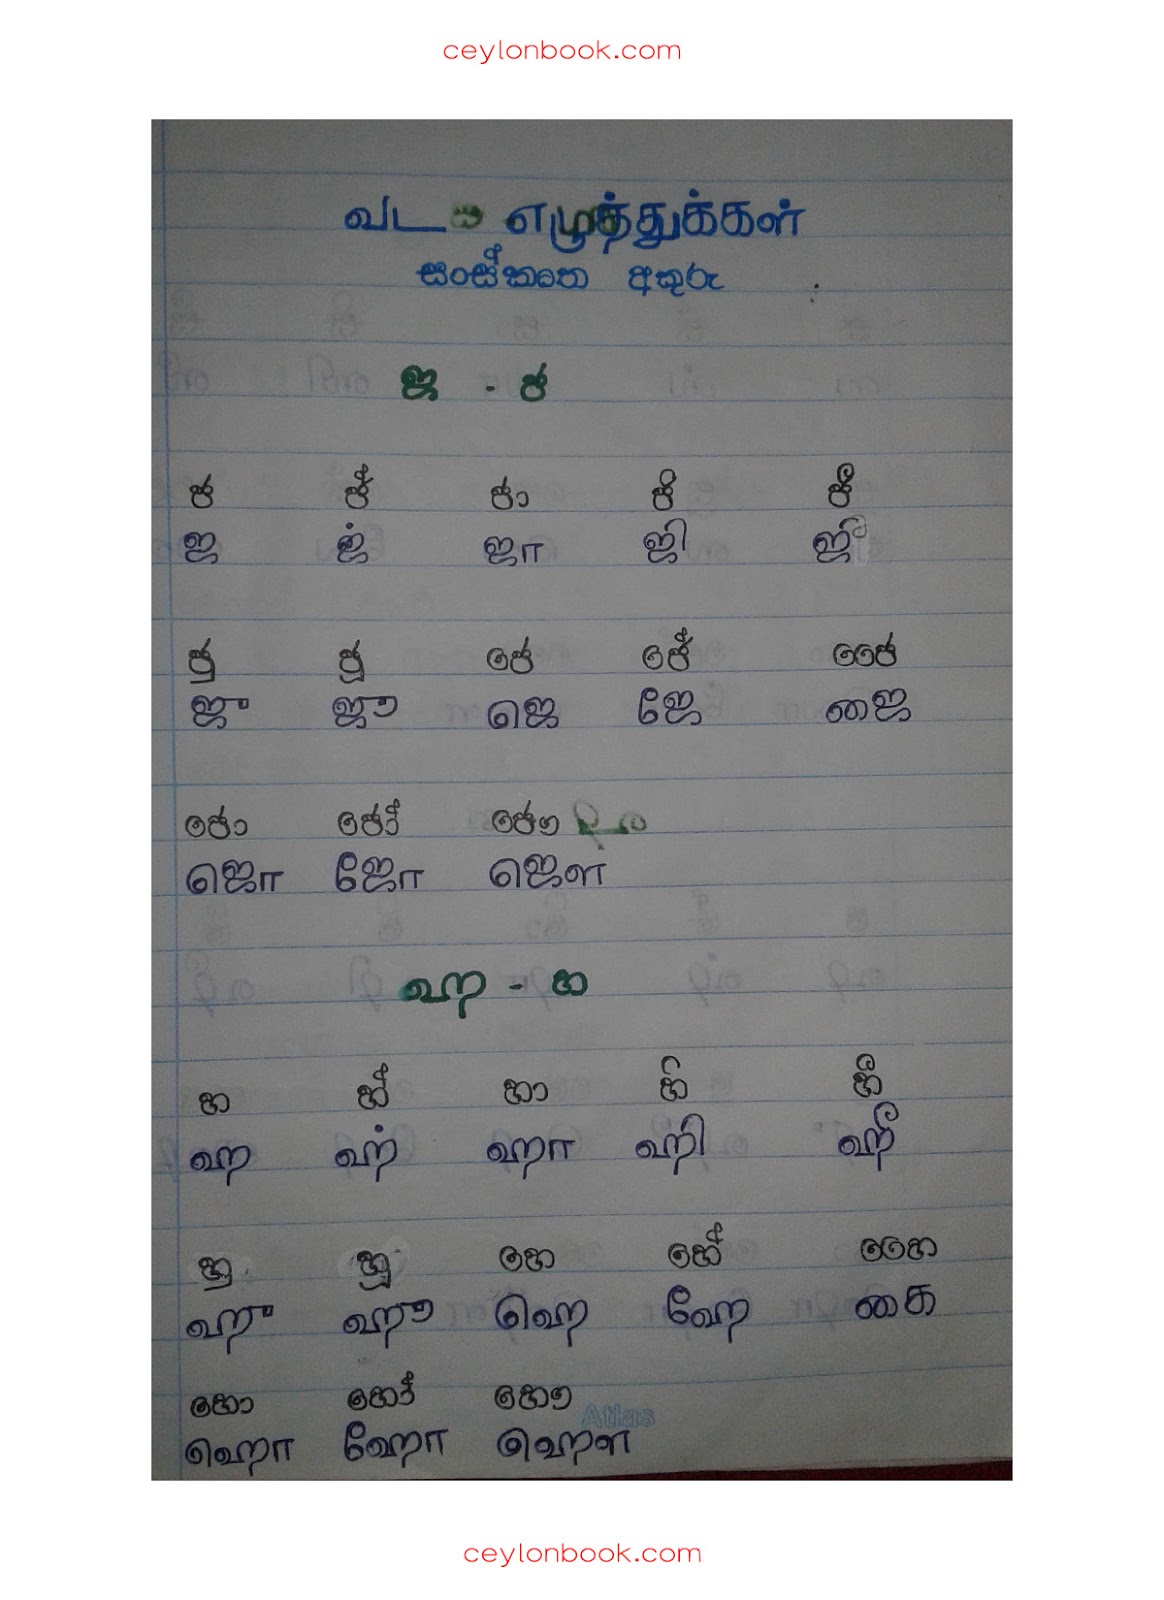 ceylonbook.com
வட எழுத்துக்கள்
සංස්කෘත අකුරු
ஜ - ජ
ජ ජ් ජා ජි ජී
ஜ ஜ் ஜா ஜி ஜீ
ජු ජූ ජෙ ජේ ජෛ
ஜு ஜூ ஜெ ஜே ஜை
ජො ජෝ ජෞ
ஜொ ஜோ ஜௌ
ஹ - හ
හ හ් හා හි හී
ஹ ஹ் ஹா ஹி ஹீ
හු හූ හෙ හේ හෛ
ஹு ஹூ ஹெ ஹே கை
හො හෝ හෞ
Atlas
ஹொ ஹோ ஹௌ
ceylonbook.com